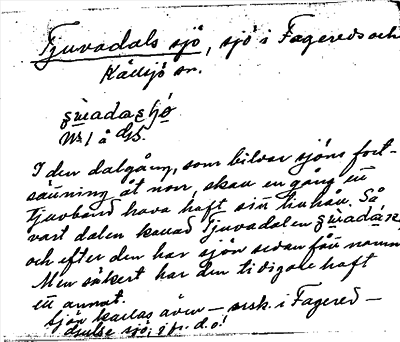 Tjuvadals sjö, sjö i Fagereds och
Källsjö sn.
Nr 1 å GS.
I den dalgång, som bildar sjöns fort-
sättning åt norr, skall en gång ett
tjuvband hava haft sitt tillhåll. Så
vart dalen kallad Tjuvadalen
och efter den har sjön sedan fått namn.
Men säkert har den tidigare haft
ett annat.
Sjön kallas även — särsk. i Fagered —
sjö, j fr. d. o!